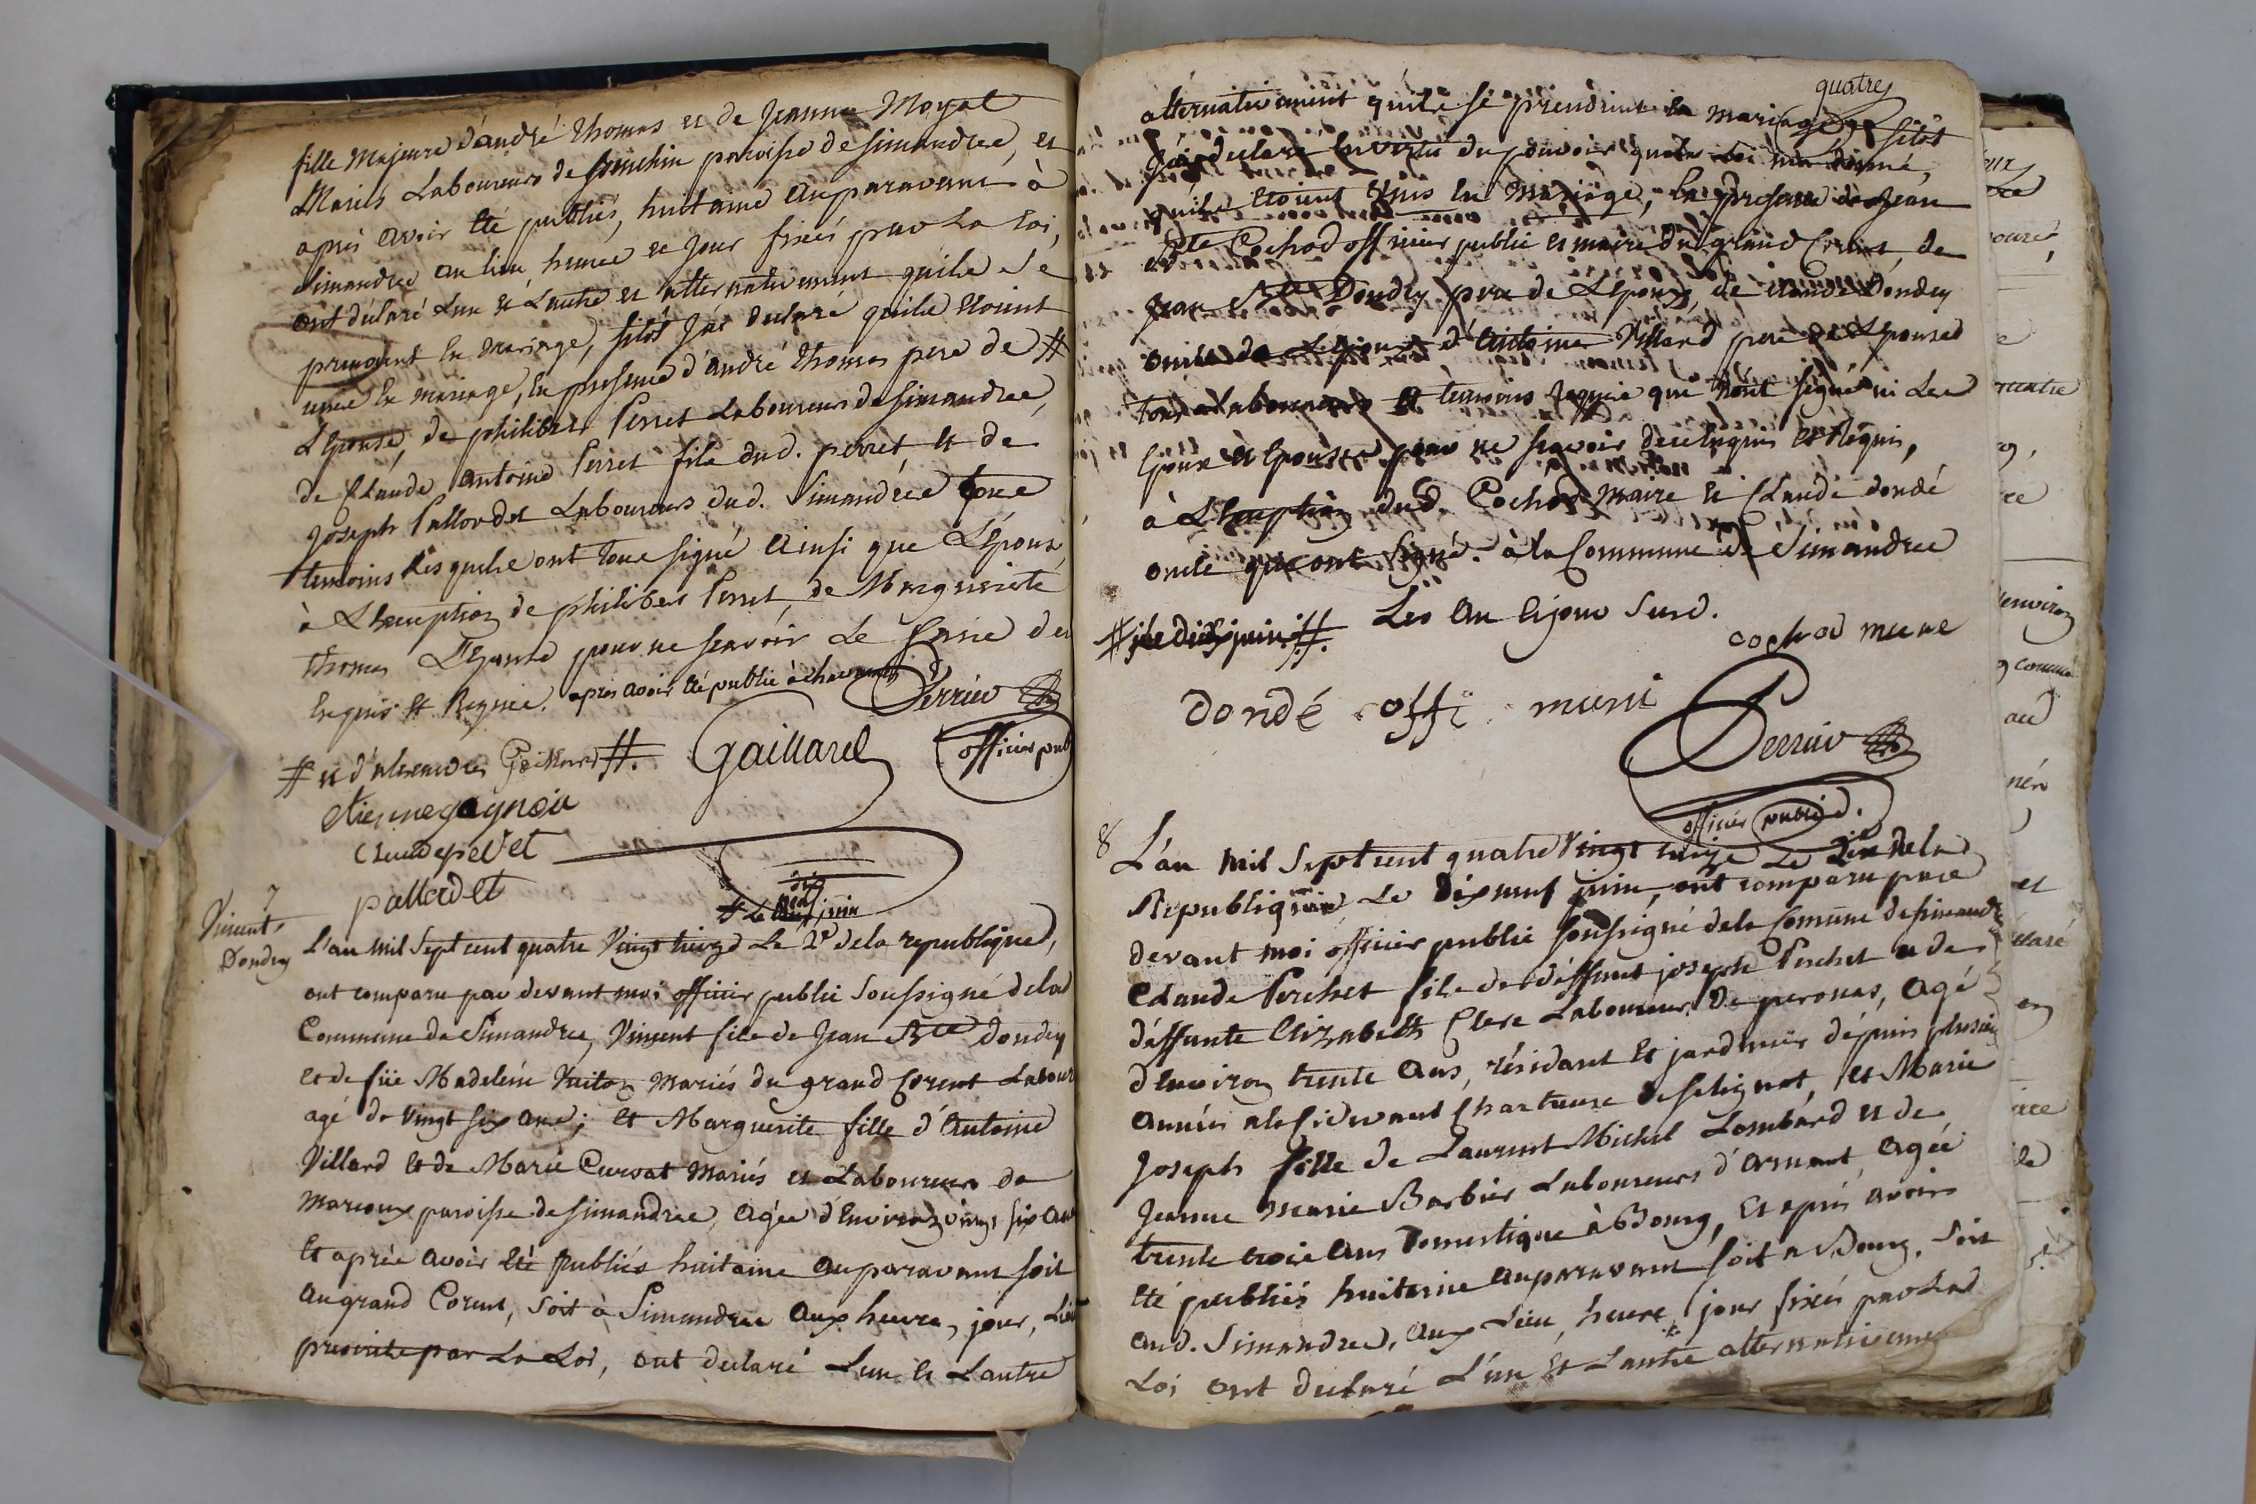 fille Majeure d'andré thomas et de Jeanne Moyat
Mariés Laboureurs de paroisse de simandre, et
après avoir été publiés, huitaine auparavant à
Simandre au lieu heure et jour fixés par la Loi,
ont déclaré L'un et L'autre et alternativement quils se
prenoient en mariage, sitôt J'ai declaré quils etoient
unis en mariage, en presence d'andré thomas pere de #
L'épouse, de philibert Perret Laboureurs de simandre,
de Claude antoine Perret fils dud. perret et de
Joseph Pallordet Laboureurs dud. Simandre tous
temoins Requis ont tous signé ainsi que L'époux
à L'exception de philibert Perret, de Marguerite
thomas L'Epouse pour ne scavoir Le faire de
Enquis et Requis. après avoir été publié à
Perrier
# et d'alexandre Gaillard #. Gaillard officier pub
etiennegagneu
Claudeperet
pallordet
7
# Le dix juin
Vincent
Dondey
L'an mil sept cent quatre Vingt treize Le 2e de la republique,
ont comparu par devant moi officier public Soussigné de la
Commune de Simandre, Vincent fils de Jean Bte dondey
et de füe Madeleine Vuiton Mariés du grand Corent Labour
agé de Vingt six ans; et Marguerite fille d'Antoine
Villard et de Marie Curvat Mariés et Laboureurs de
Marcoux paroisse de simandre, agée d'Environ vingt six ans
Et après avoir été publiés huitaine auparavant soit
au grand Corent, soit à Simandre aux heure, jour, Lieu
prescrits par La Loi, ont declaré L'un et L'autre
quatre
alternativement quils se prendrint en mariage, sitôt
J'ai declaré En vertu du pouvoir que la Loi m'a donné,
quils etoient Unis En Mariage, En presence de Jean
Bte Cochod officier public et maire du grand Corent, de
Jean Bte Dondey pere de L'Epoux, de claude Dondey
oncle de L'Epoux d'Antoine Villard pere de L'Epouse
tous Laboureurs et temoins Requis qui n'ont signé ni Les
Epoux et Epouse pour ne scavoir de ce Enquis et Requis,
à L'Exception dud. Cochod maire et Claude dondé
oncle qui ont signé. à la Commune de Simandre
# Le dix juin #. Les an et jour Susd.
cochod maire
dondé offi muni
Perrier
officier public.
8
L'an mil Sept cent quatre Vingt treize Le 2e de la
Republique Le dix neuf juin, ont comparu par
devant moi officier public soussigné de la Comune de simandre
Claude Perchet fils de déffunt joseph Perchet et de
déffunte Elizabeth Clere Laboureurs De peronas, agé
d'Environ trente ans, résidant et jardinier dépuis plusieu
années a la Cidevant Chartreuse de selignat, et Marie
Joseph fille de Laurent Michel Lombard et de
Jeanne Marie Barbier Laboureurs d'arnant, agée
trente trois ans Domestique à Bourg, Et après avoir
été publiés huitaine auparavant soit a Bourg, soit
aud. Simandre, aux Lieu, heure, jour fixés par La
Loi ont declaré L'un et L'autre alternativement